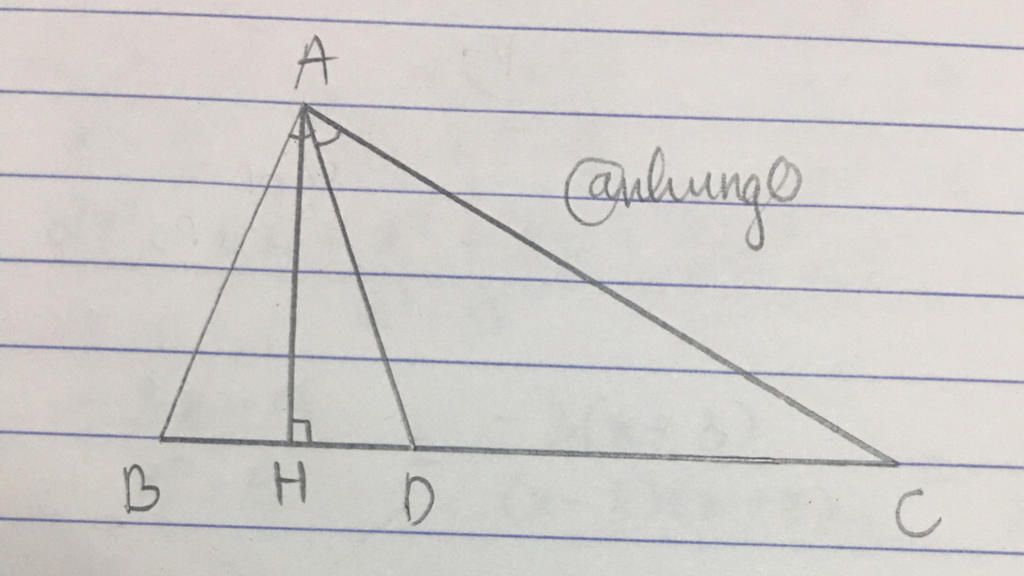 A
@nhung
B H D C